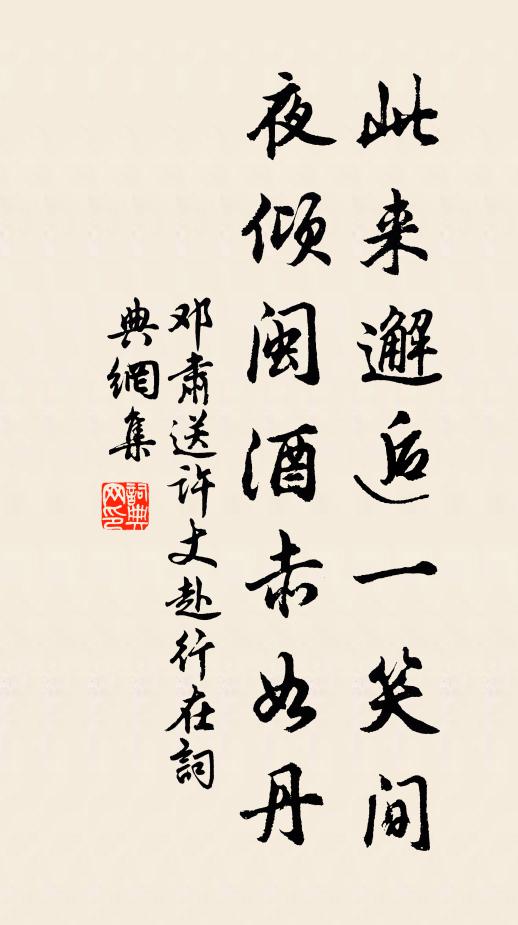 此来邂逅一笑间
夜倾闽酒赤如丹
邓肃送许丈赴行在詞
典網集
詞典
网印